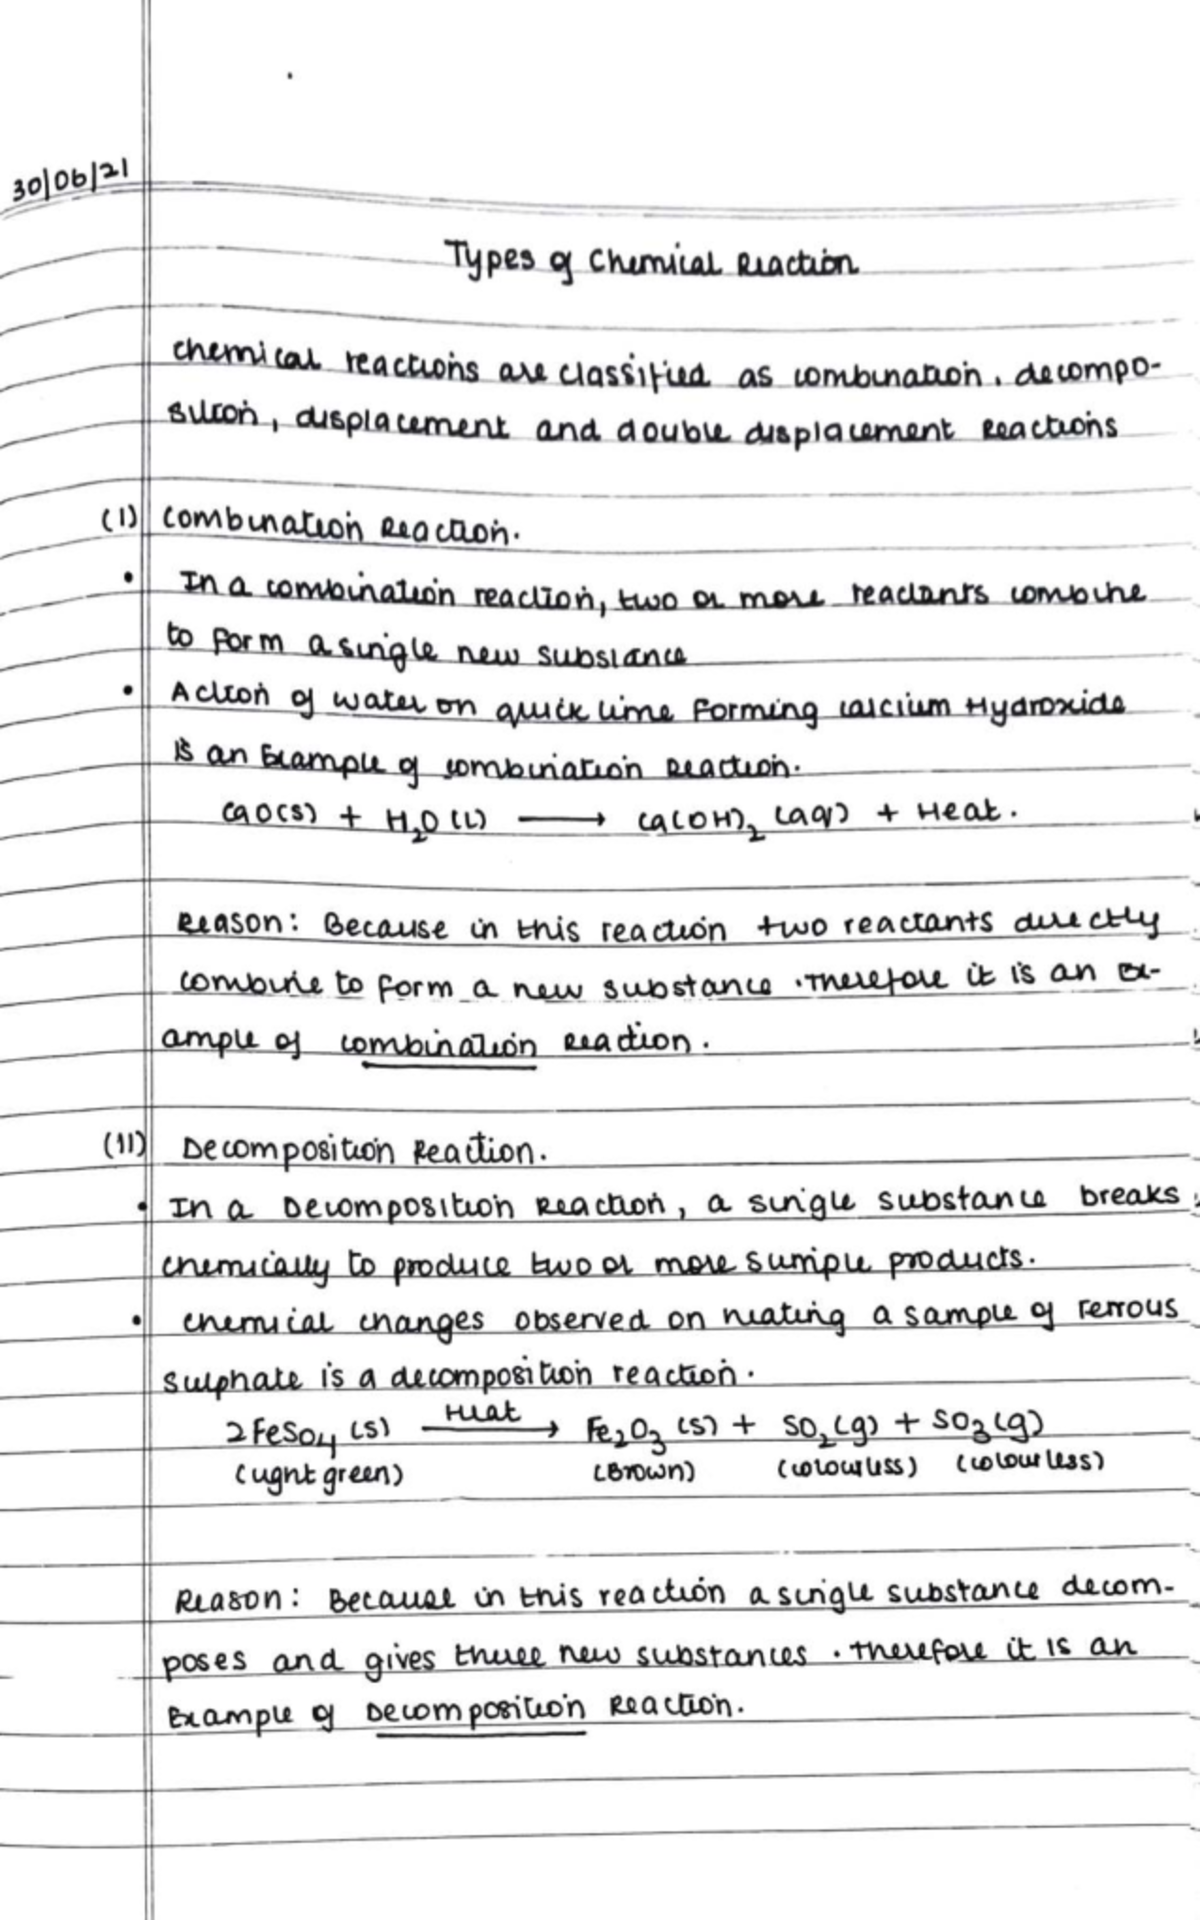 30/06/21
Types of Chemical Reaction
chemical reactions are classified as combination, decompo-
sition, displacement and double displacement Reactions
(I) Combination Reaction.
• In a combination reaction, two or more reactants combine
to form a single new substance
• Action of water on quick lime forming calcium Hydroxide
is an Example of combination Reaction.
CaO(s) + H₂O (l) ⟶ Ca(OH)₂ (aq) + Heat.
Reason: Because in this reaction two reactants directly
combine to form a new substance. Therefore it is an Ex-
ample of combination Reaction.
(II) Decomposition Reaction.
• In a Decomposition Reaction, a single substance breaks
chemically to produce two or more simple products.
• chemical changes observed on heating a sample of ferrous
sulphate is a decomposition reaction.
Heat
2FeSO₄ (s) ⟶ Fe₂O₃ (s) + SO₂(g) + SO₃(g)
(light green) (Brown) (colourless) (colourless)
Reason: Because in this reaction a single substance decom-
poses and gives three new substances. Therefore it is an
Example of Decomposition Reaction.